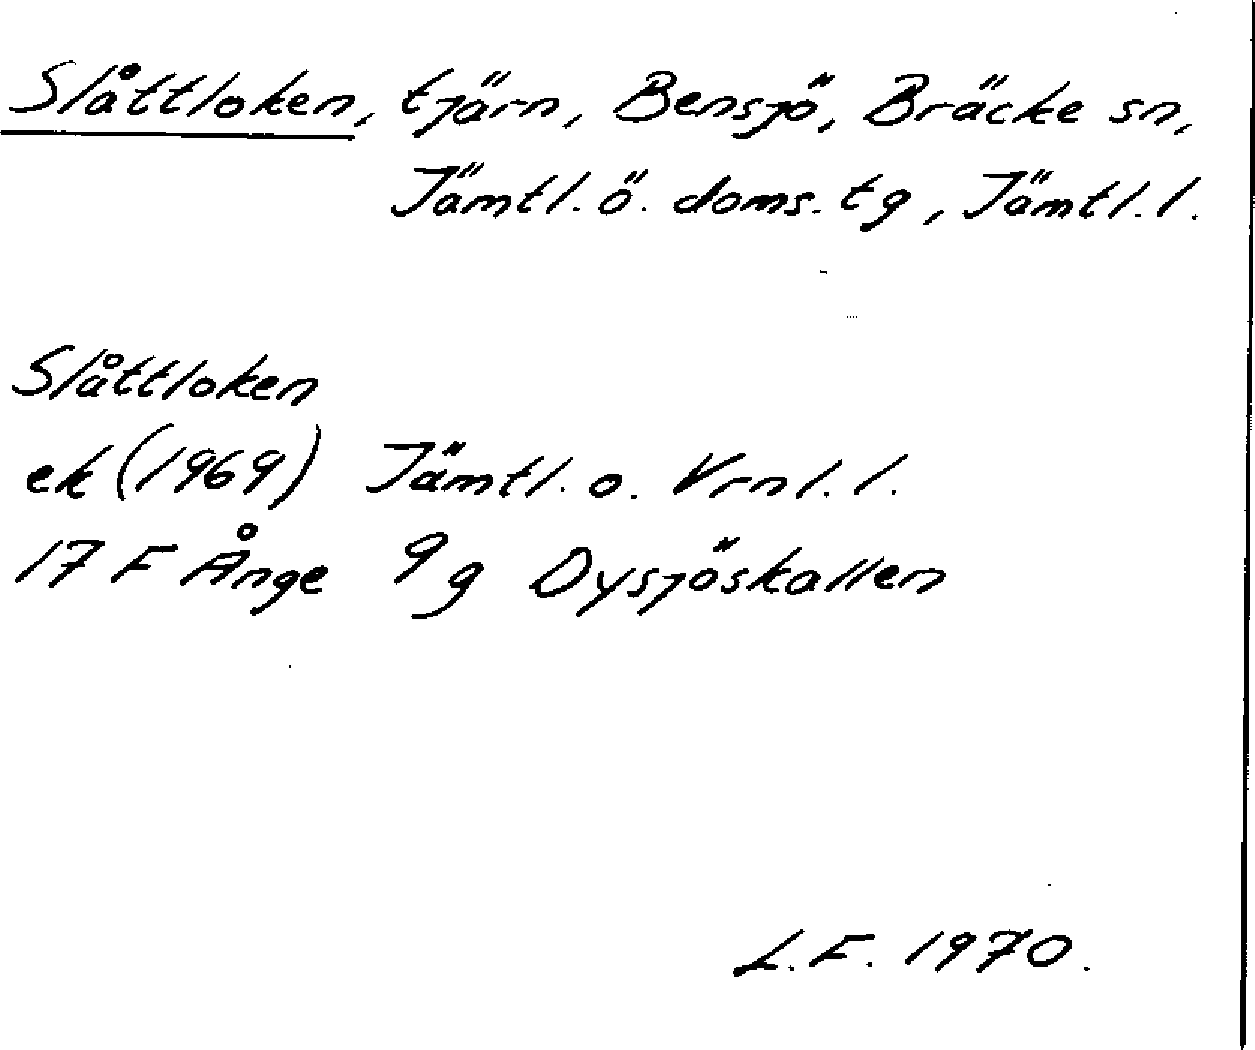 Slåttloken, tjärn, Bensjö, Bräcke sn,
Jämtl. ö. doms. tg, Jämtl. l.
Slåttloken
ek (1969) Jämtl. o. Vrnl. l.
17 F Ånge 9g Dysjöskallen
L.F. 1970.